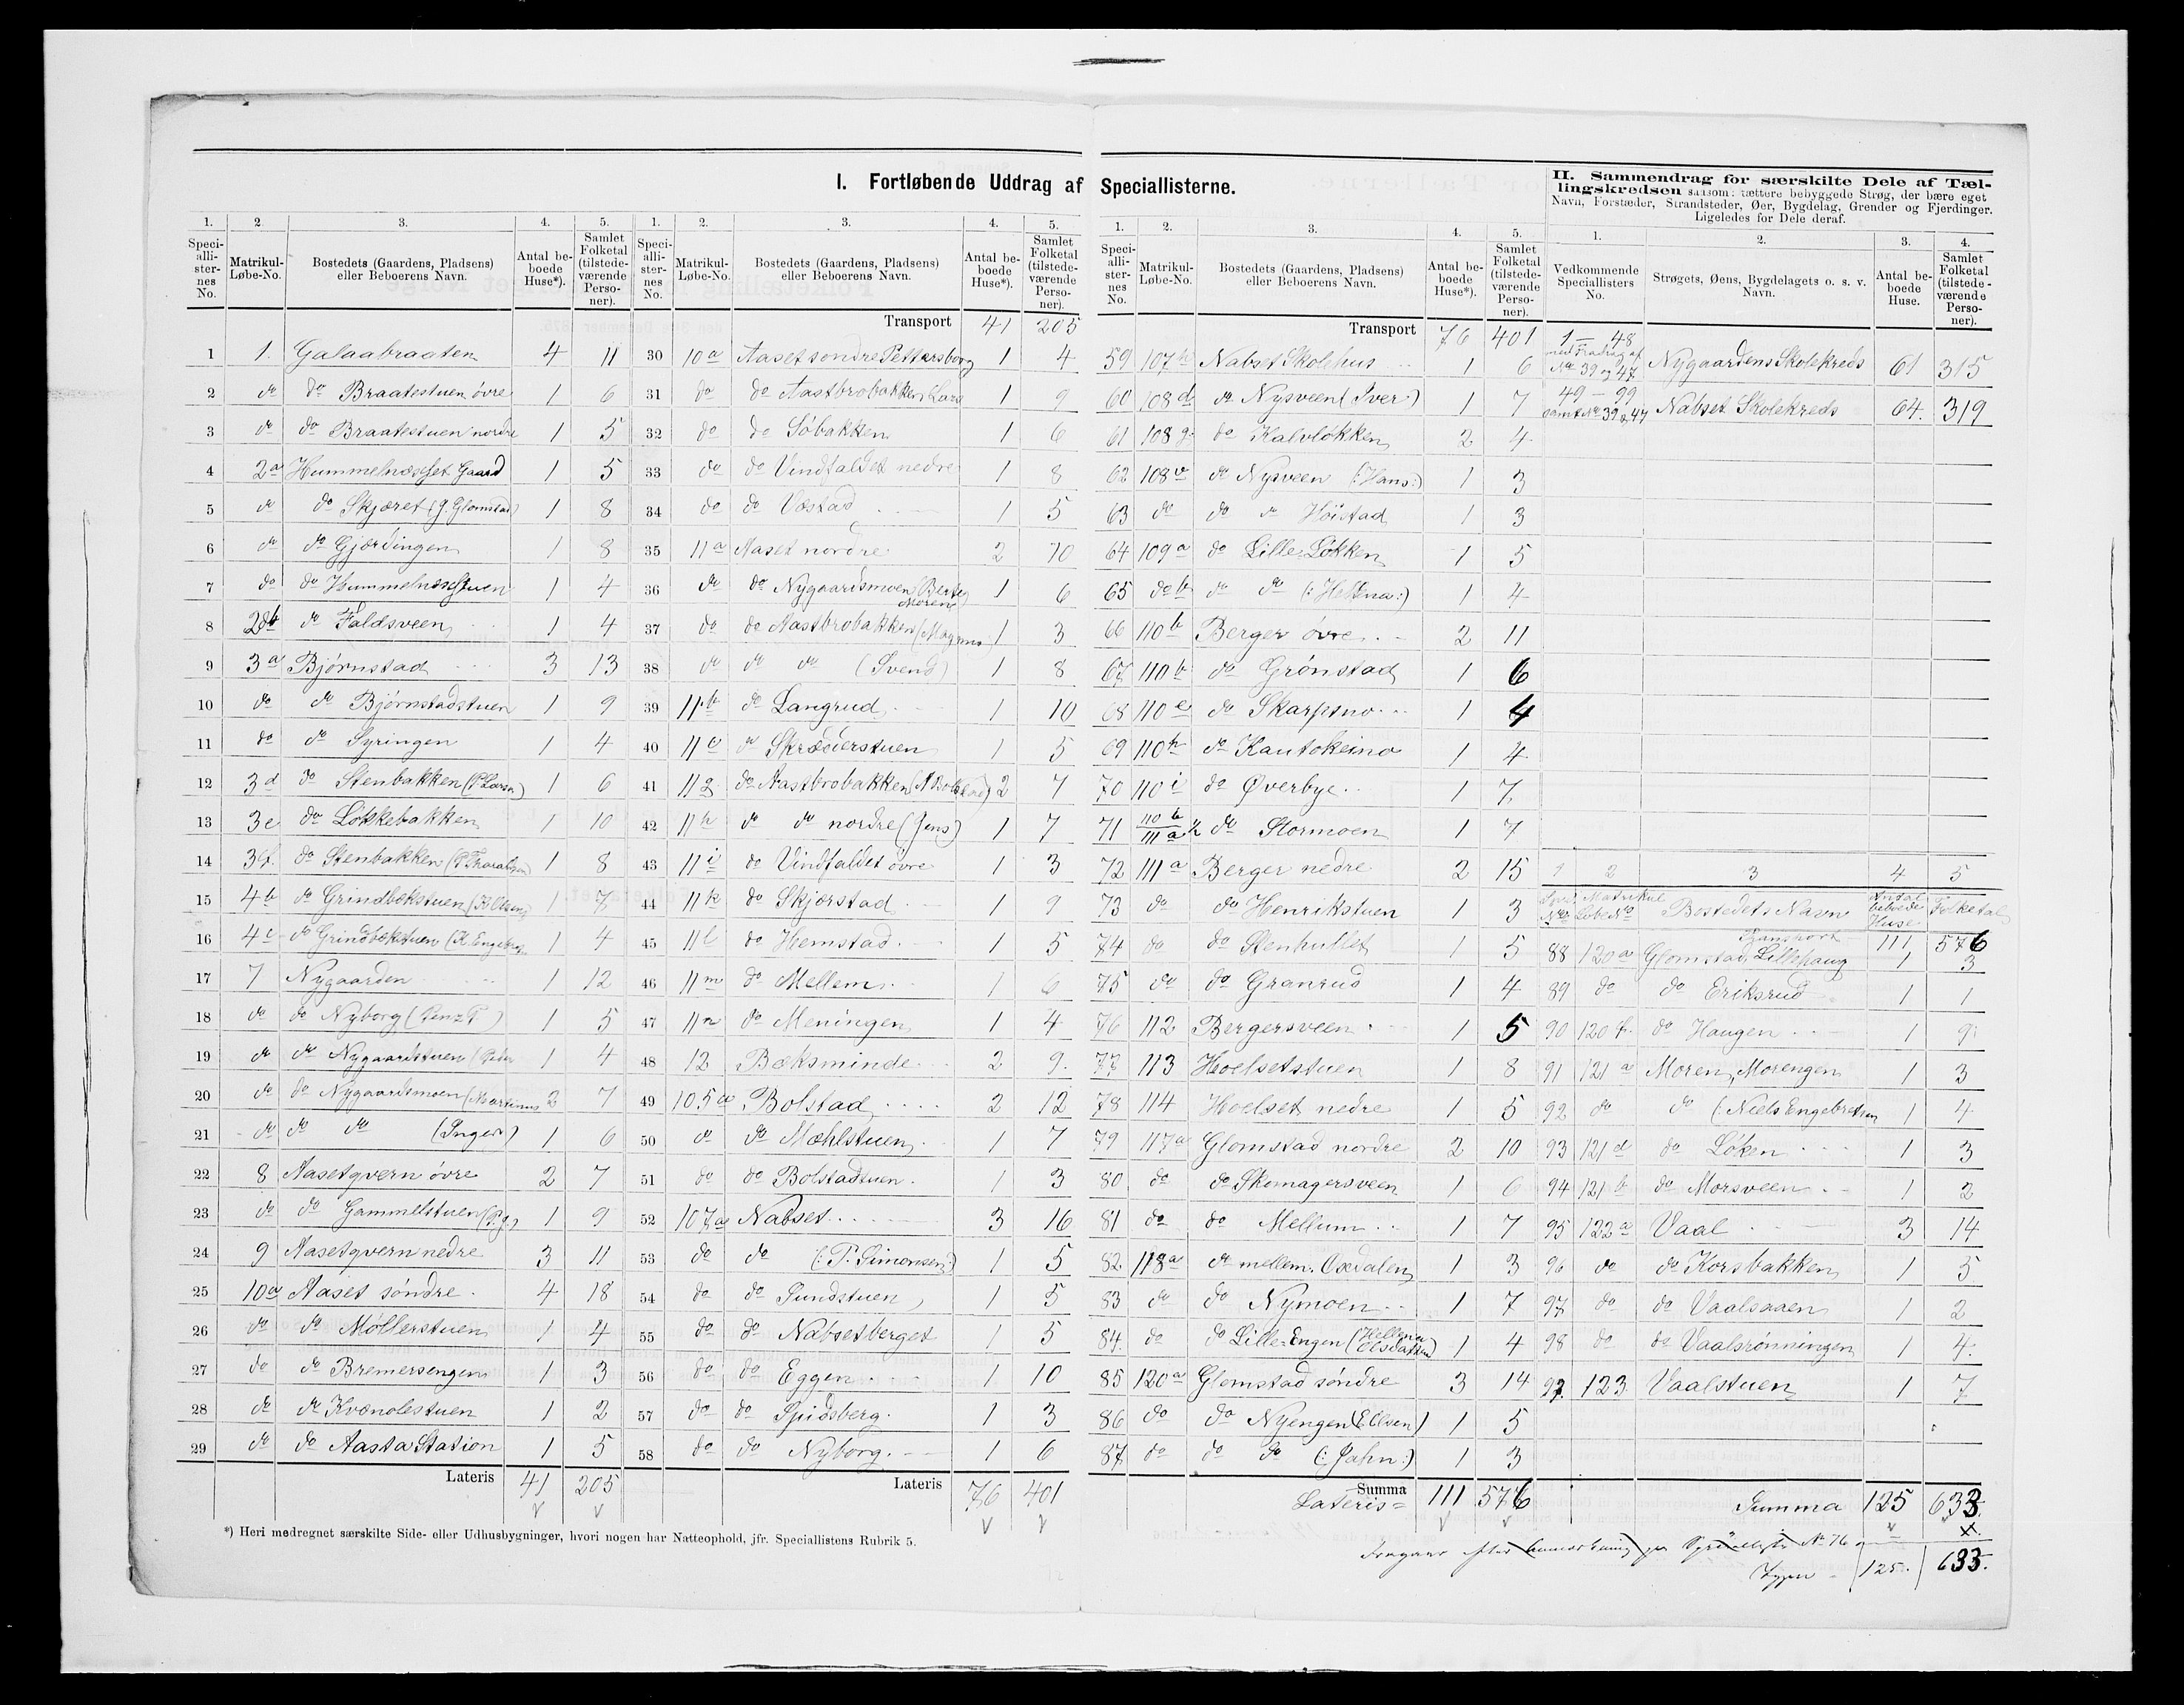 I. Fortløbende Uddrag af Speciallisterne.
II. Sammendrag for særskilte Dele af Tællingskredsen saasom: tættere bebyggede Strøg, der bære eget Navn, Forstæder, Strandsteder, Øer, Bygdelag, Grender og Fjerdinger. Ligeledes for Dele deraf.
1. 2. 3. 4. 5.
Speciallisternes No. Matrikul-Løbe-No. Bostedets (Gaardens, Pladsens) eller Beboerens Navn. Antal beboede Huse*). Samlet Folketal (tilstedeværende Personer).
1 1. Galaabraaten 4 11
2 do do Braatestuen øvre 1 6
3 do do Braatestuen nordre 1 5
4 2a Hummelnæsset Gaard 1 5
5 do do Skjæret (J. Glomstad) 1 8
6 do do Gjærdingen 1 8
7 do do Hummelnæsstuen 1 4
8 2b do Faldsveen 1 4
9 3a Bjørnstad 3 13
10 do do Bjørnstadstuen 1 9
11 do do Syringen 1 4
12 3d do Stenbakken (P. Larsn) 1 6
13 3e do Løkkebakken 1 10
14 3f. do Stenbakken 1 8
15 4b do Grindbekstuen 1 7
16 4c do Grindbekstuen 1 4
17 7 Nygaarden 1 12
18 do do Nyborg 1 5
19 do do Nygaardstuen (Peter 1 4
20 do do Nygaardsmoen (Martinus 2 7
21 do do do (Inger) 1 6
22 8 Aasetqvern øvre 2 7
23 do do Gammelstuen 1 9
24 9 Aasetqvern nedre 3 11
25 10a Aaset søndre 4 18
26 do do Møllerstuen 1 4
27 do do Bremersengen 1 3
28 do do Kvænolestuen 1 2
29 do do Aasta Station 1 5
Lateris 41 205
*) Heri medregnet særskilte Side- eller Udhusbygninger, hvori nogen har Natteophold, jfr. Speciallistens Rubrik 5.
1. 2. 3. 4. 5.
Speciallisternes No. Matrikul-Løbe-No. Bostedets (Gaardens, Pladsens) eller Beboerens Navn. Antal beboede Huse*). Samlet Folketal (tilstedeværende Personer).
Transport 41 205
30 10a Aaset søndre Pettersborg 1 4
31 do do Aastbrobakken Lars 1 9
32 do do Søbakken 1 6
33 do do Vindfaldet nedre 1 8
34 do do Væstad 1 5
35 11a Aaset nordre 2 10
36 do do Nygaardsmoen 1 6
37 do do Aastbrobakken (Magnus) 1 3
38 do do do (Svend) 1 8
39 11b do Langrud 1 10
40 11c do Skræderstuen 1 5
41 11g do Aastbrobakken 2 7
42 11h do do nordre (Jens) 1 7
43 11i do Vindfaldet øvre 1 3
44 11k do Skjørstad 1 9
45 11l do Hemstad 1 5
46 11m do Mellem 1 6
47 11n do Meningen 1 4
48 12 Bæksminde 2 9.
49 105a Bolstad 2 12
50 do do Mæhlstuen 1 7
51 do do Bolstadtuen 1 3
52 107a Nabset 3 16
53 do do (: P. Simonsen:) 1 5
54 do do Sundstuen 1 5
55 do do Nabsetberget 1 5
56 do do Eggen 1 10
57 do do Spidsberg. 1 3
58 do do Nyborg. 1 6
Lateris 76 401
1. 2. 3. 4. 5.
Speciallisternes No. Matrikul-Løbe-No. Bostedets (Gaardens, Pladsens) eller Beboerens Navn. Antal beboede Huse*). Samlet Folketal (tilstedeværende Personer).
Transport 76 401
59 107b Nabset Skolehus 1 6
60 108d do Nysveen (Iver) 1 7
61 108g. do Kalvløkken 2 4
62 108 do Nysveen (: Hans:) 1 3
63 do do do Høistad 1 3
64 109a do Lille Løkken 1 5
65 do b do do (: Hellena:) 1 4
66 110b Berger øvre 2 11
67 110b do Grønstad 1 6
68 110e do Skarpsno 1 4
69 110h do Kautokeino 1 4
70 110i do Øverbye 1 7
71 110b 111a do Stormoen 1 7
72 111a Berger nedre 2 15
73 do do Henrikstuen 1 3
74 do do Stenhullet 1 5
75 do do Granrud 1 4
76 112 Bergersveen 1 5
77 113 Hoelsetstuen 1 8
78 114 Hoelset nedre 1 5
79 117a Glomstad nordre 2 10
80 do do Skomagersveen 1 6
81 do do Mellum 1 7
82 118a do mellem. Oxdalen 1 3
83 do do Nymoen 1 7
84. do do Lille-Engen (Hellena Olsdatter) 1 4
85 120a Glomstad søndre 3 14
86 do do Nyengen (E. Olsen) 1 5
87 do do do (: Jahn:) 1 3
Summa Lateris = 111 576
1. 2. 3. 4.
Vedkommende Speciallisters No. Strøgets, Øens, Bygdelagets o. s. v. Navn. Antal beboede Huse. Samlet Folketal (tilstedeværende Personer).
1 — 48 med Fradrag af No 39 og 47 Nygaardens Skolekreds 61 315
49 — 99 samt No 39 & 47 Nabset Skolekreds 64. 319
1 2 3 4 5
Spec. No Matrikul Løbe No Bostedets Navn Antal beboede Huse Folketal
Transport 111 576
88 120a Glomstad, Lillehaug 1 3
89 do do Eriksrud 1 1
90 120 do Haugen 1 9
91 121a Moren, Morengen 1 3
92 do do (: Niels Engebretsen 1 4
93 121d do Løken 1 3
94 121b do Morsveen 1 2
95 122a Vaal 3 14
96 do do Korsbakken 1 5
97 do do Vaalsaaen 1 2
98 do do Vaalsrønningen 1 4.
99 123 Vaalstuen 1 7
Summa 125 633
No 76
125. 633.